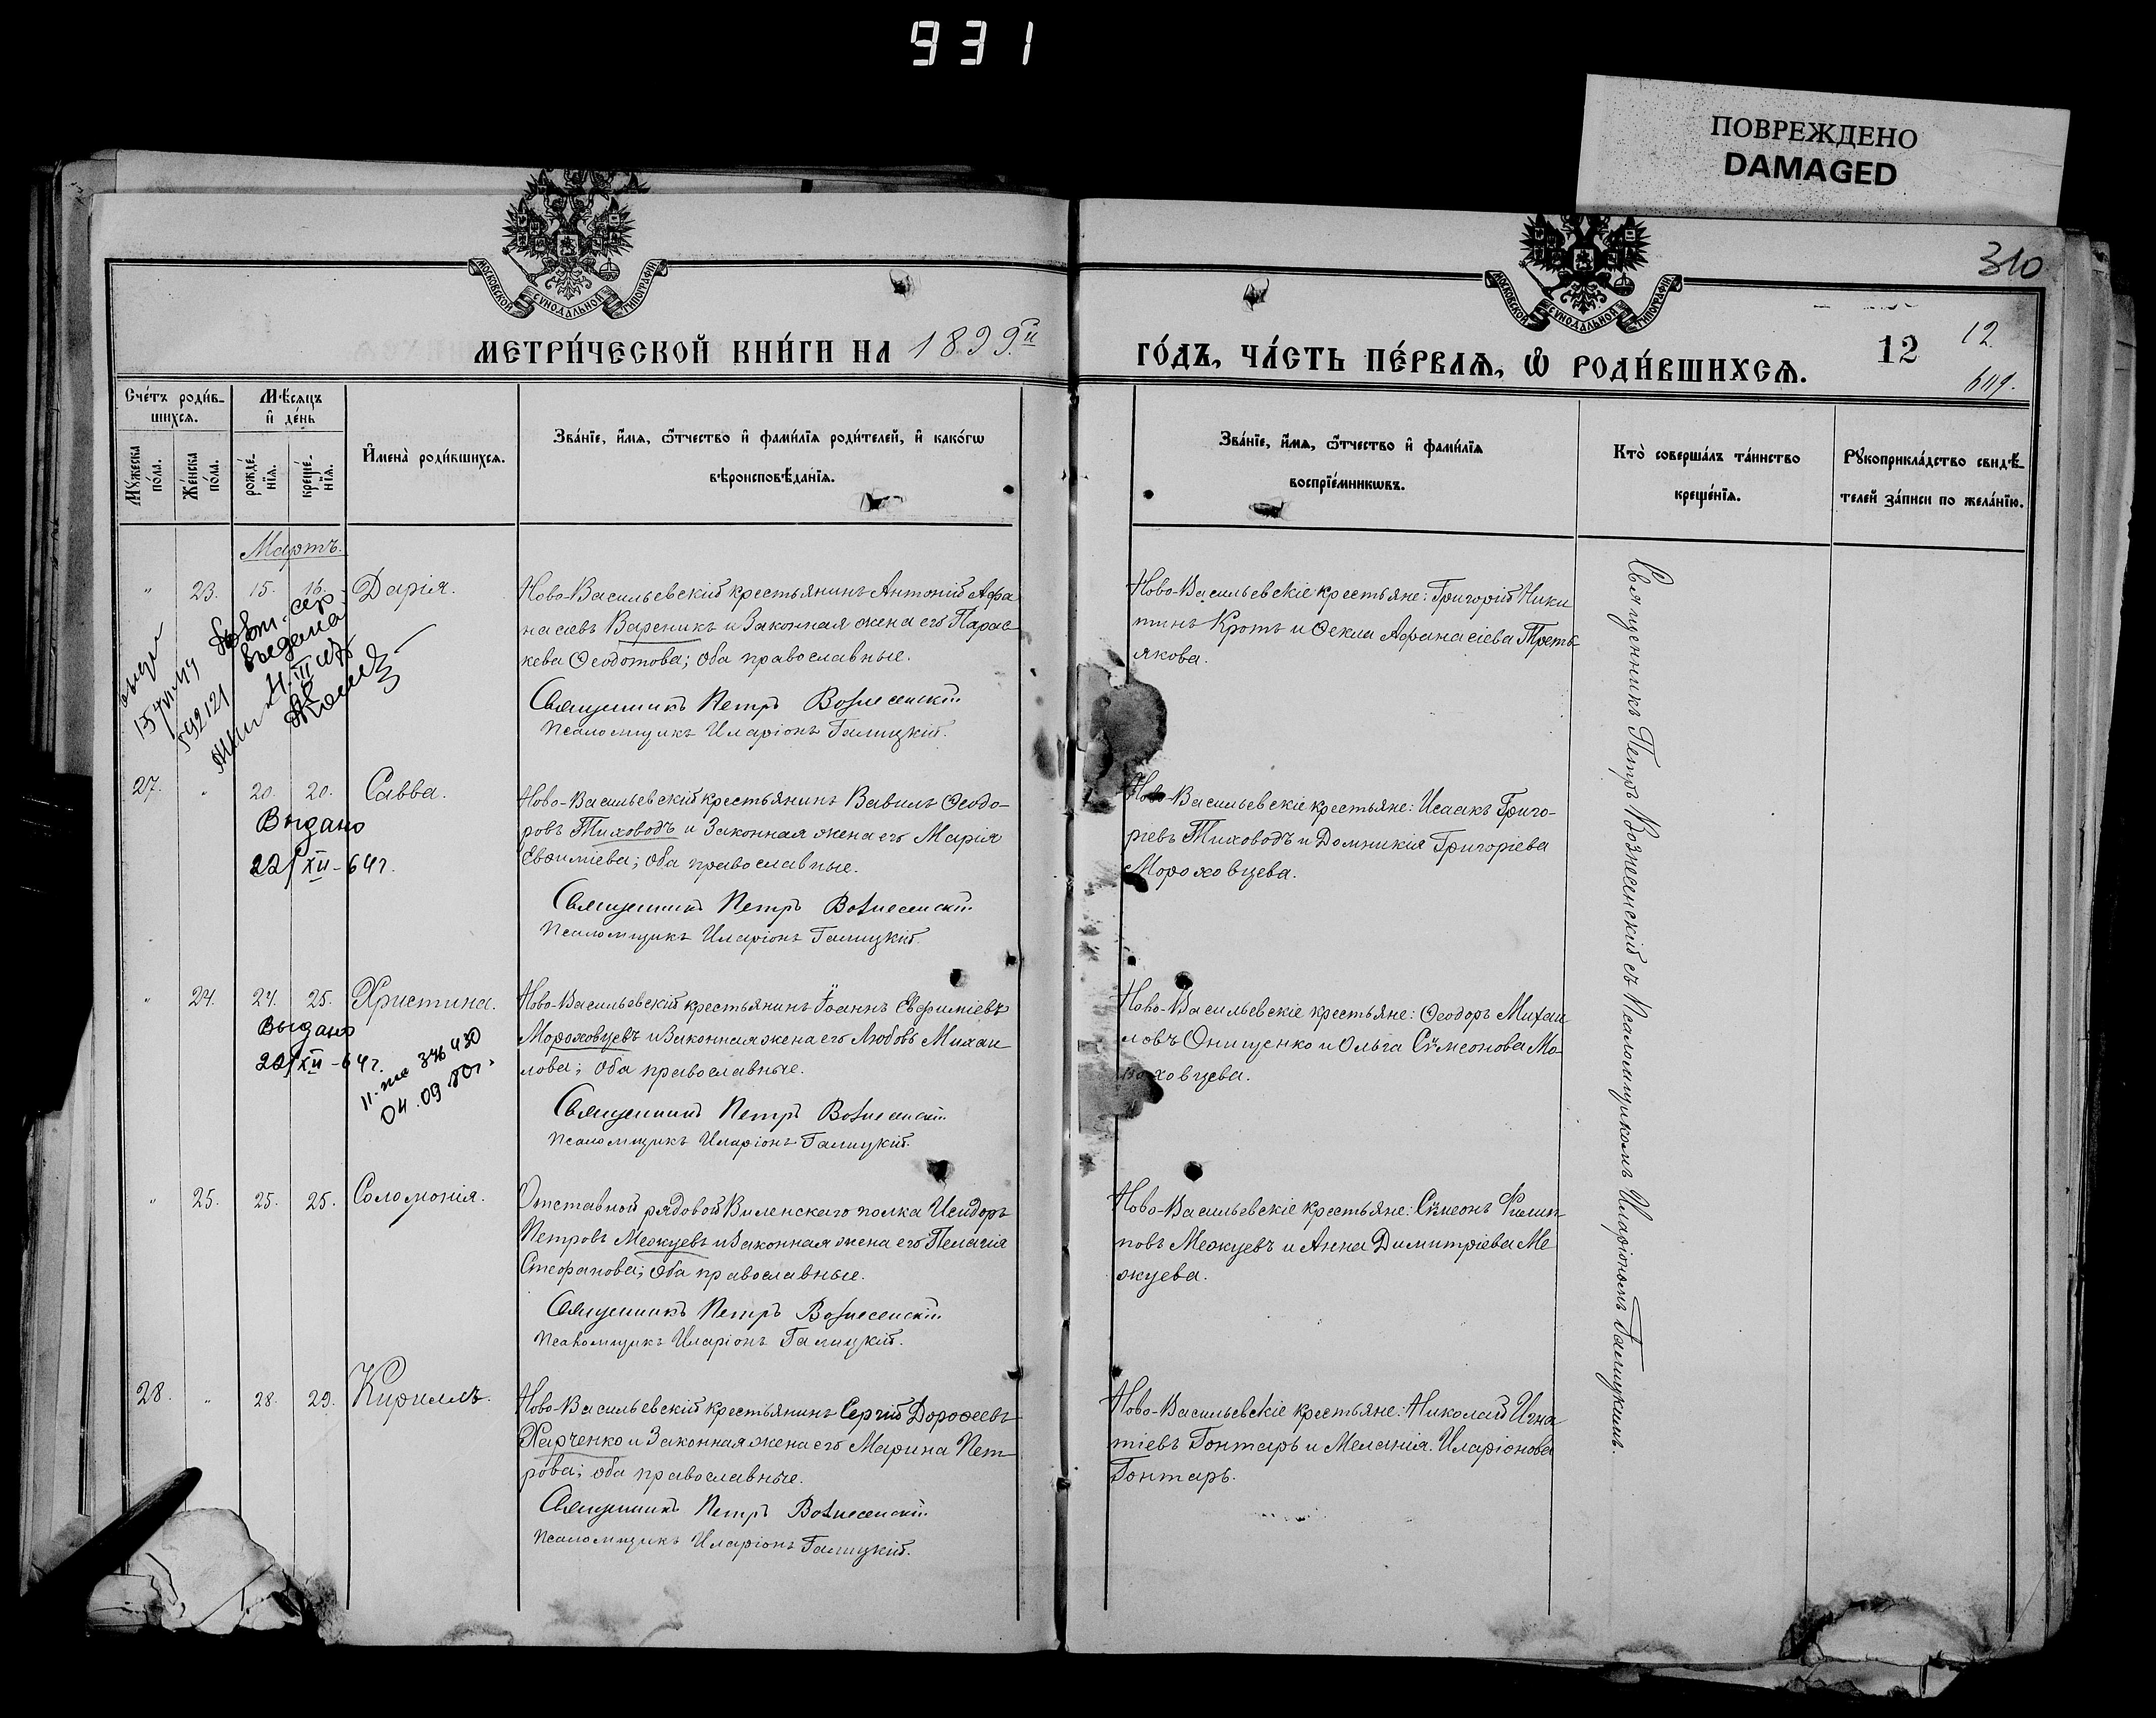 931
ПОВРЕЖДЕНО
DAMAGED
310
МОСКОВСКОЙ СѴНОДАЛЬНОЙ ТИПОГРАФІИ
МОСКОВСКОЙ СѴНОДАЛЬНОЙ ТИПОГРАФІИ
МЕТРИ́ЧЕСКОЙ КНИ́ГИ НА 1899й
ГО́ДЪ, ЧА́СТЬ ПЕ́РВАѦ, Ѡ҆ РОДИ́ВШИХСѦ.
12
12.
Сче́тъ роди́в-
шихсѧ.
Мѣ́сѧцъ
и҆ де́нь
Мꙋ́жеска по́ла.
Же́нска по́ла.
рожде́-
нїѧ.
креще́-
нїѧ.
И҆мена̀ роди́вшихсѧ.
Зва́нїе, и҆́мѧ, ѻ҆́тчество и҆ фами́лїѧ роди́телей, и҆ како́гѡ
вѣроисповѣ́данїѧ.
Зва́нїе, и҆́мѧ, ѻ҆́тчество и҆ фами́лїѧ
воспрїе́мникѡвъ.
Кто̀ соверша́лъ та́инство
креще́нїѧ.
Рꙋкоприкла́дство свидѣ́-
телей за́писи по жела́нїю.
Мартъ.
" 23. 15. 16. Дарія.
Ново-Васильевскій крестьянинъ Антоній Афа
насіевъ Вареникъ и законная жена его Парас-
кева Ѳеодотова; оба православные.
Священникъ Петръ Вознесенскій
Псаломщикъ Иларіонъ Галицкій.
Ново-Васильевскіе крестьяне: Григорій Ники
тинъ Кротъ и Ѳекла Афанасіева Треть
якова.
27. " 20. 20. Савва.
Выдано
22/XII-64г.
Ново-Васильевскій крестьянинъ Вавилъ Ѳеодо-
ровъ Тиховодъ и законная жена его Марія
Евѳиміева; оба православные.
Священникъ Петръ Вознесенскій
Псаломщикъ Иларіонъ Галицкій.
Ново-Васильевскіе крестьяне: Исаакъ Григо-
ріевъ Тиховодъ и Домникія Григоріева
Мороховцева.
" 24. 24. 25. Христина.
Выдано
22/XII-64г.
04.09.80г.
Ново-Васильевскій крестьянинъ Іоаннъ Евфиміевъ
Мороховцевъ и законная жена его Любовь Михаи
лова; оба православные.
Священникъ Петръ Вознесенскій
Псаломщикъ Иларіонъ Галицкій.
Ново-Васильевскіе крестьяне: Ѳеодоръ Михаи
ловъ Онищенко и Ольга Сѵмеонова Мо-
роховцева.
" 25. 25. 25. Соломонія.
Отставной рядовой Виленскаго полка Исидоръ
Петровъ Межуевъ и законная жена его Пелагія
Стефанова; оба православные.
Священникъ Петръ Вознесенскій
Псаломщикъ Иларіонъ Галицкій.
Ново-Васильевскіе крестьяне: Сѵмеонъ Филип
повъ Межуевъ и Анна Димитріева Ме
жуева.
28. " 28. 29. Кириллъ.
Ново-Васильевскій крестьянинъ Сергій Дороѳеевъ
Харченко и законная жена его Марина Пет-
рова; оба православные.
Священникъ Петръ Вознесенскій
Псаломщикъ Иларіонъ Галицкій.
Ново-Васильевскіе крестьяне: Николай Игна
тіевъ Гонтарь и Меланія Иларіонова
Гонтарь.
Священникъ Петръ Вознесенскій съ Псаломщикомъ Иларіономъ Галицкимъ.